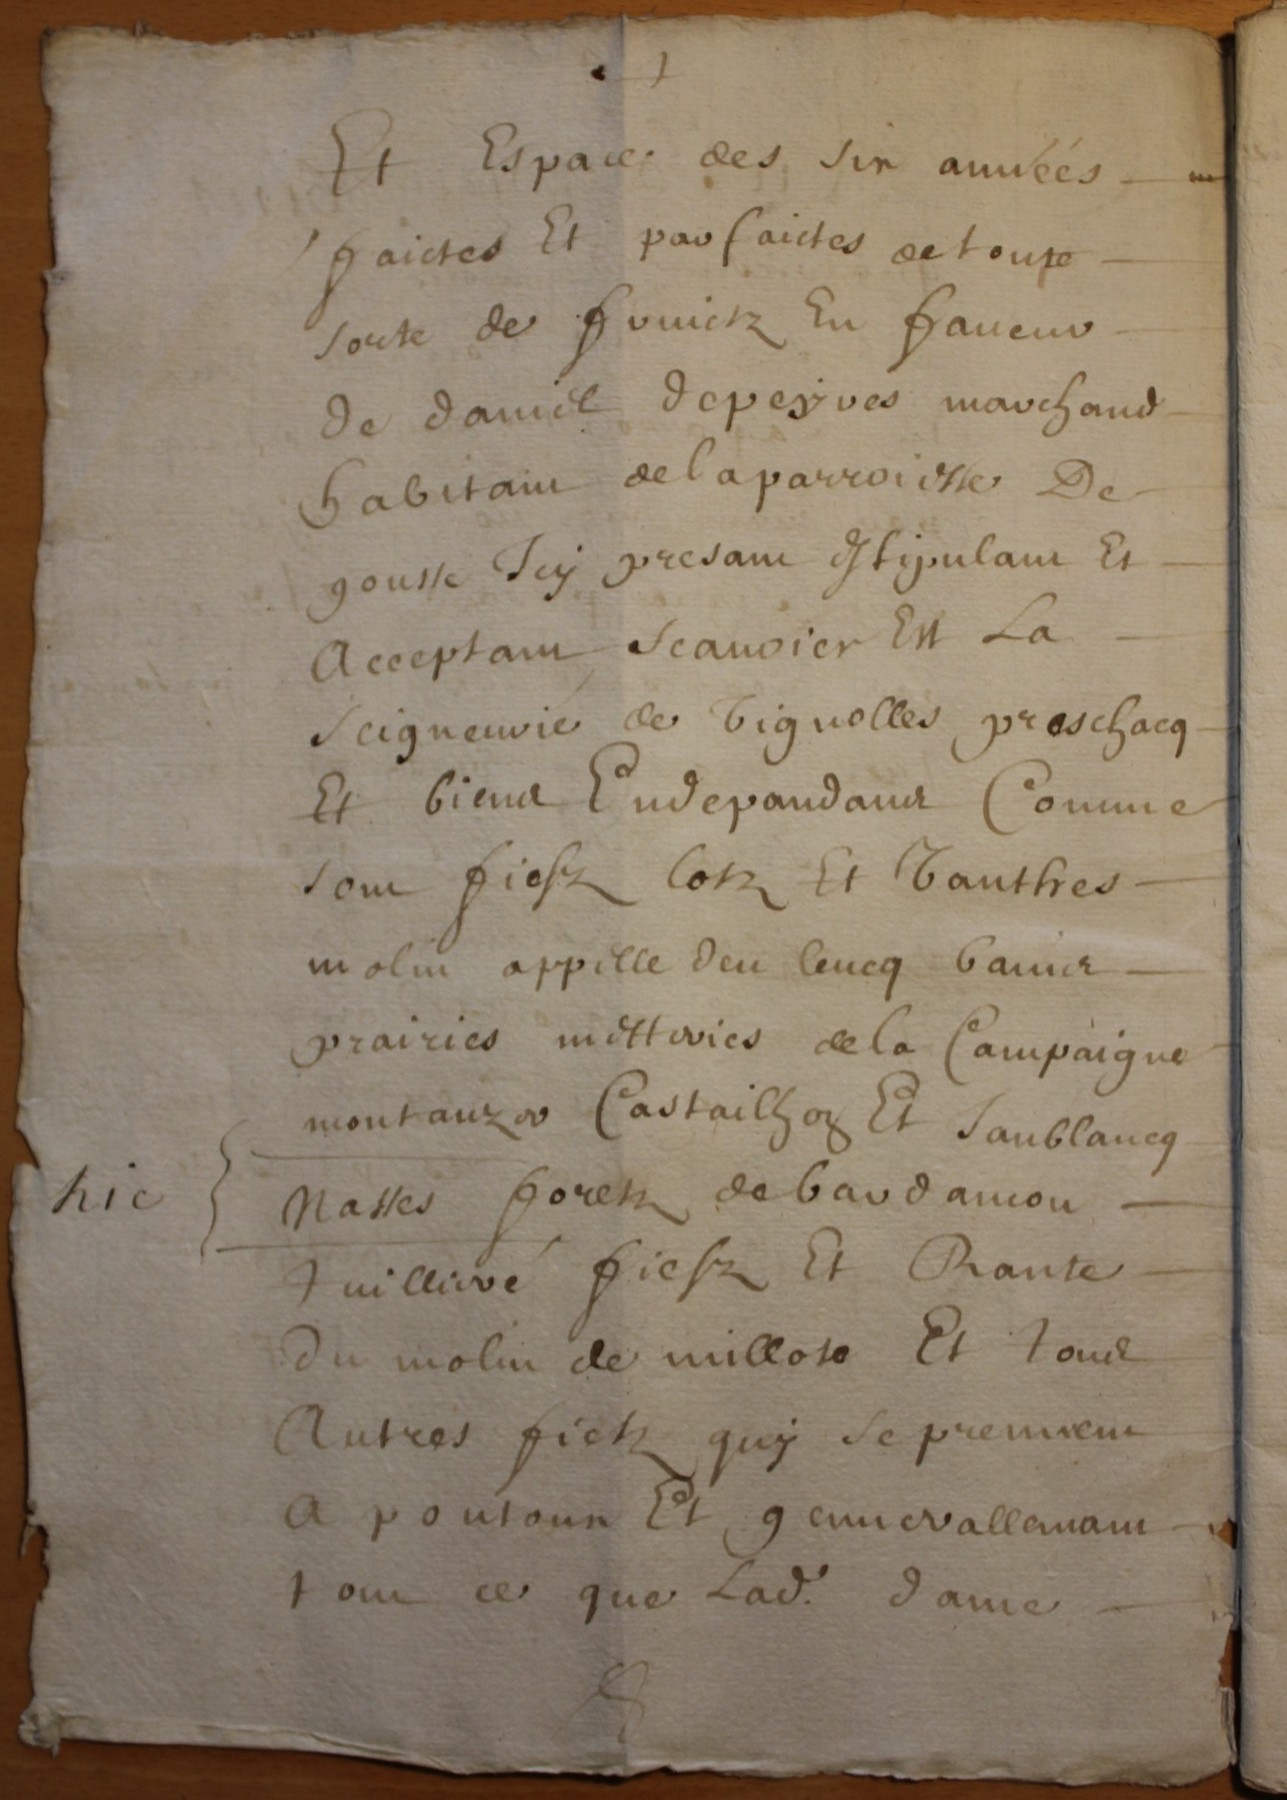 Et Espace des six années
faictes Et parfaictes de toute
sorte de fruictz En faueur
de daniel depeyres marchand
habitant de la parroisse De
gousse Icy presant Stipulant Et
Acceptant Scauoier Est La
Seigneurie de Vignolles preschacq
Et biens Endepandans Comme
sont fiefz lotz Et Vanthes
molin appelle deu lucq bains
prairies metteries de la Campaigne
montauzer Castailhon Et Saublancq
hic Nasses foretz de bardamon
tuillerie fiefz Et Rante
du molin de millote Et tous
Autres fietz quy se prennent
A poutoux Et gennerallemant
tout ce que Lad. dame